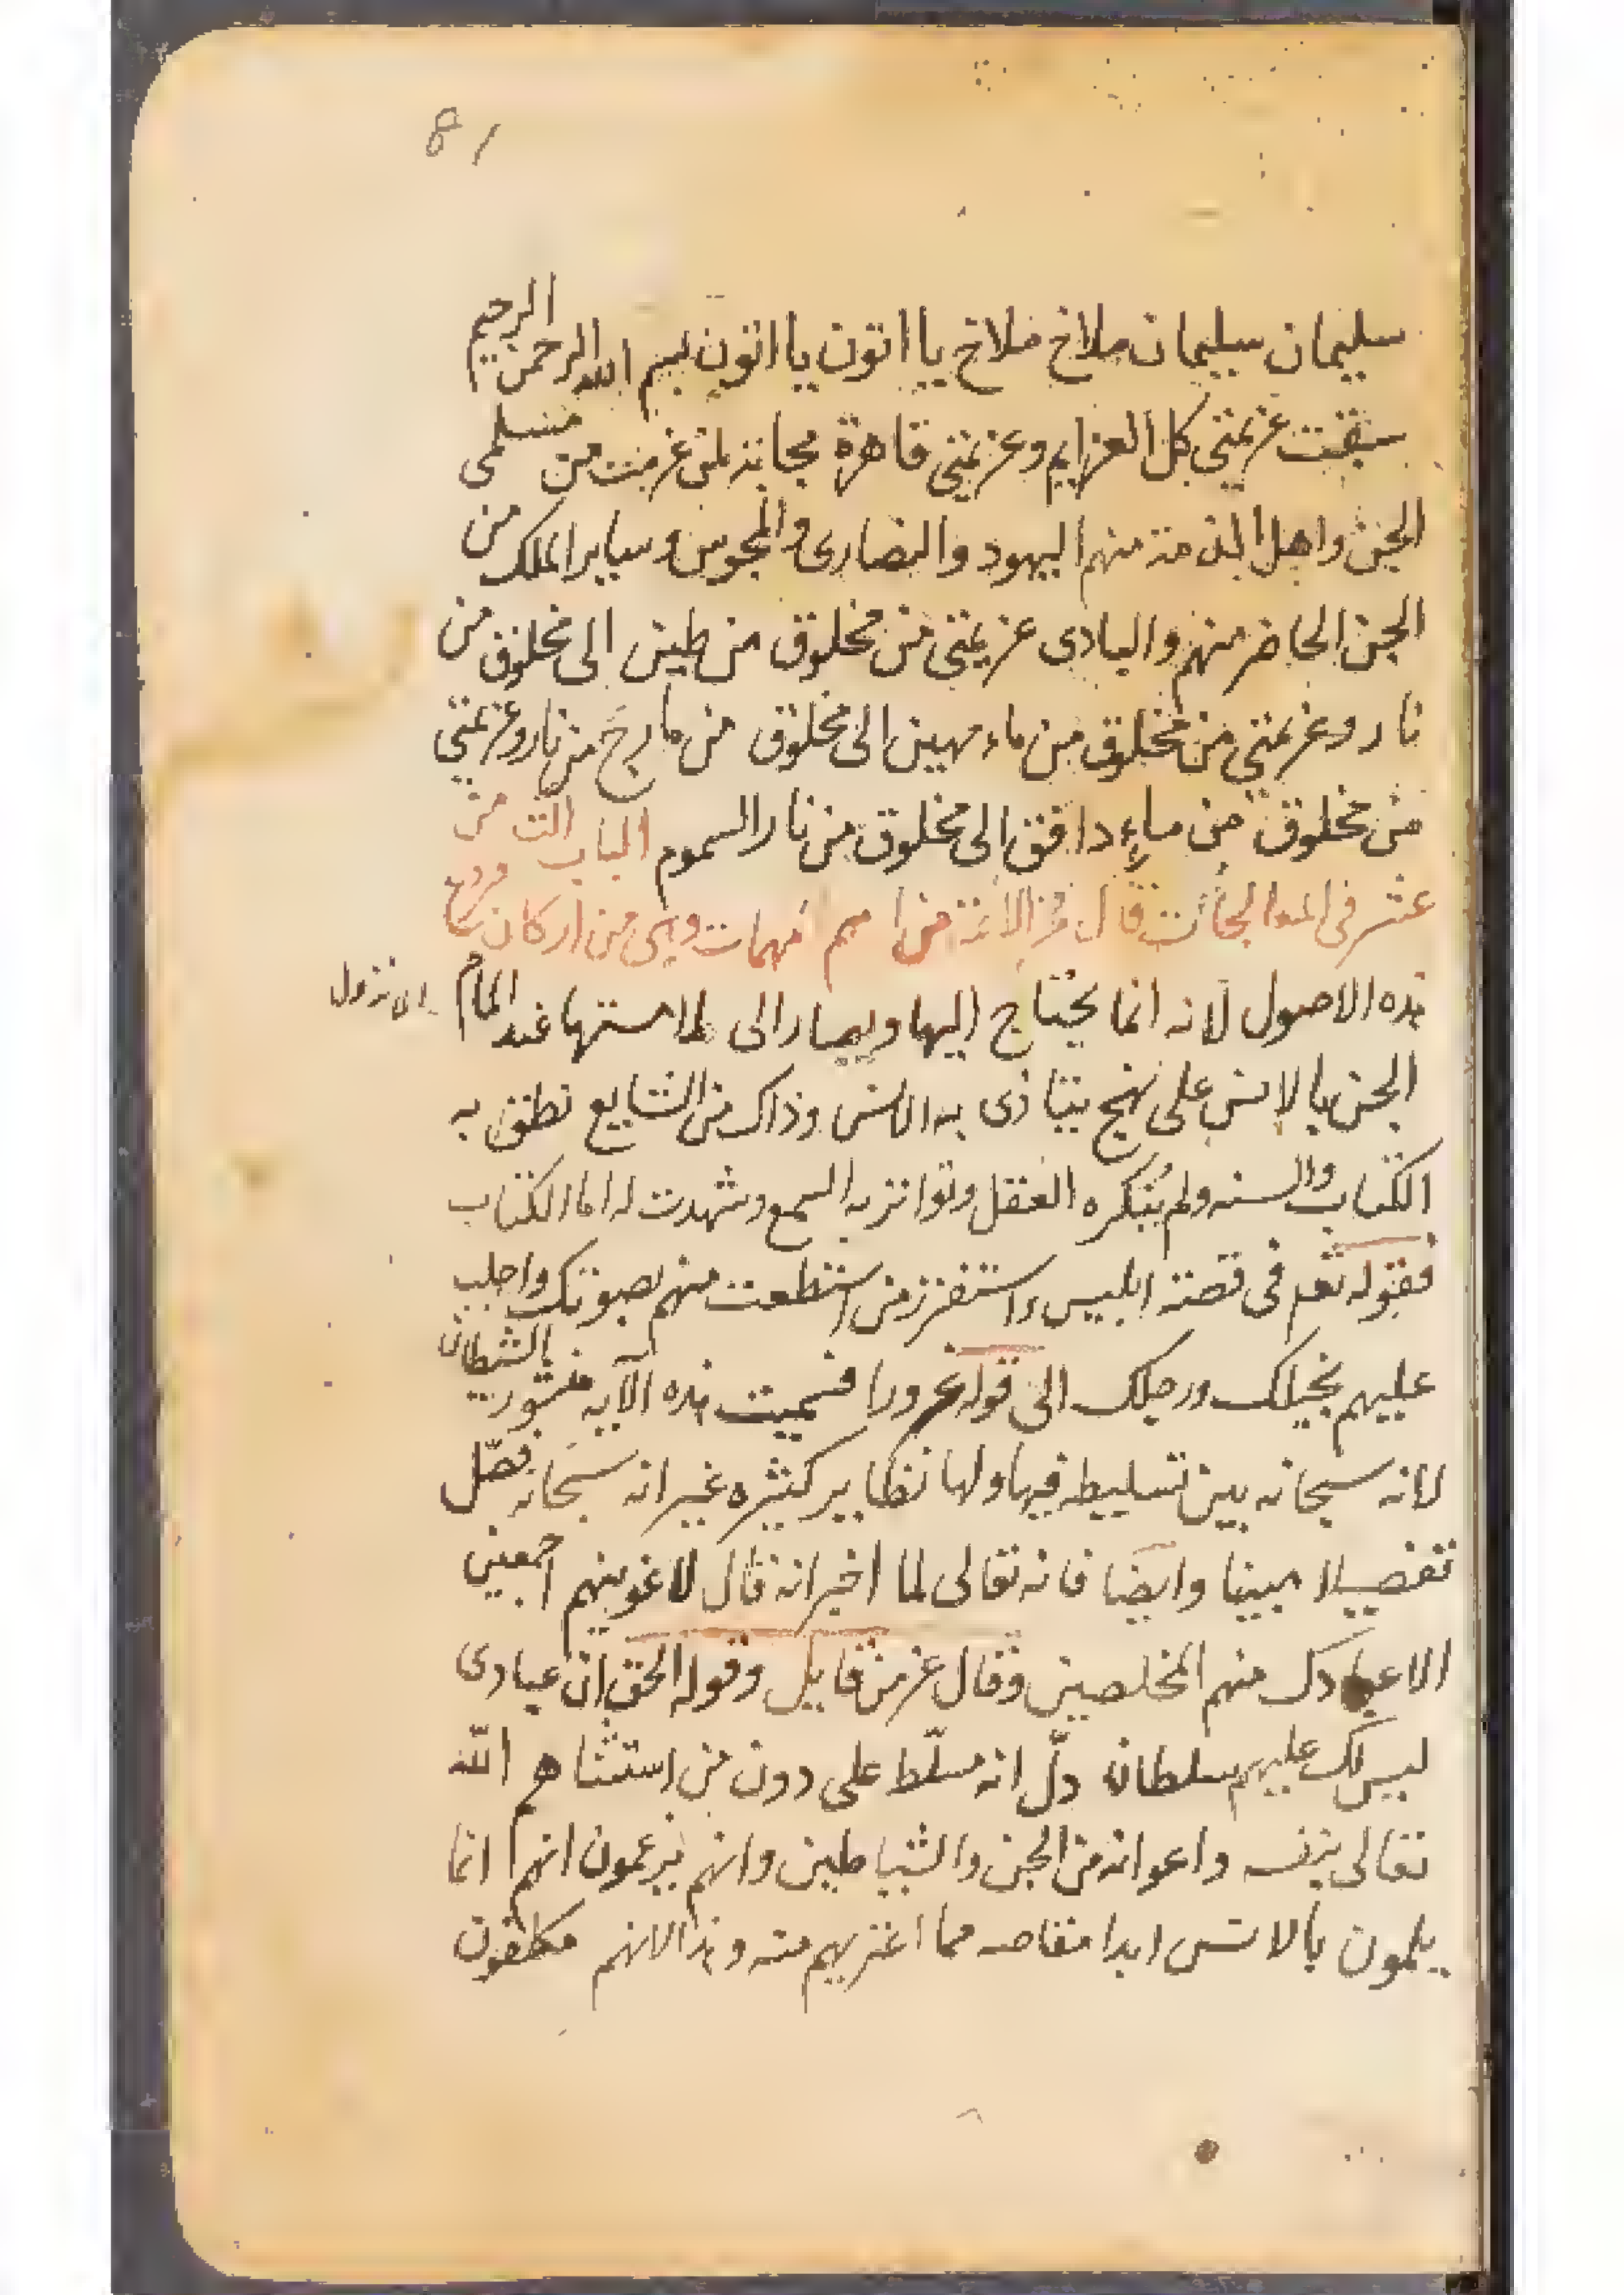 81
سليمان سليمان ملاخ ملاخ يا انون يا انون بسم الله الرحمن الرحيم
سبقت عزيمتى كل العزايم وعزيمتى قاهرة مجابة لمن عزمت من مسلمى
الجن واهل الذمة منهم اليهود والنصارى والمجوس وساير الملك من
الجن الحاضر منهم والبادى عزيمتى من مخلوق من طين الى مخلوق من
نار وعزيمتى من مخلوق من ماء مهين الى مخلوق من مارج من نار وعزيمتى
من مخلوق من ماء دافق الى مخلوق من نار السموم الباب الثامن
عشر فى المعالجات قال من امهات وهى من اركان فروع
هذه الاصول لانه انما يحتاج اليها ويصار الى ملامستها عند المام
الجن بالانس على نهج يتاذى به الانس وذاك من الشايع نطق به
الكتاب والسنه ولم يُنكره العقل وتواتر به السمع وشهدت له اما الكتاب
فقوله تعم فى قصة ابليس واستفزز من استطعت منهم بصوتك واجلب
عليهم بخيلك ورجلك الى قوله غرورا فسميت هذه الآية منشور الشيطان
لانه سبحانه بين تسليطه فيها ولها نظاير كثيره غير انه سبحانه فصّل
تفصيلا مبينا وايضا فانه تعالى لما اخبر انه قال لاغوينهم اجمعين
الا عبادك منهم المخلصين وقال عز من قايل وقوله الحق ان عبادى
ليس لك عليهم سلطان دلّ انه مسلّط على دون من استثناهم الله
تعالى بنفسه واعوانه من الجن والشياطين وانهم يزعمون انهم انما
يلمون بالانس ابدا مقاصه مما اعتريهم منه وهذا لانهم مكلفون